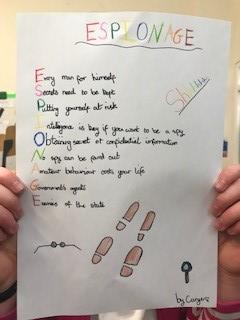 ESPIONAGE
Every man for himself
Secrets need to be kept
Putting yourself at risk
Intelligence is key if you want to be a spy
Obtaining secret or confidential information
No spy can be found out
Amateur behaviour costs your life
Governments agents
Enemies of the state
Shhhhh
by